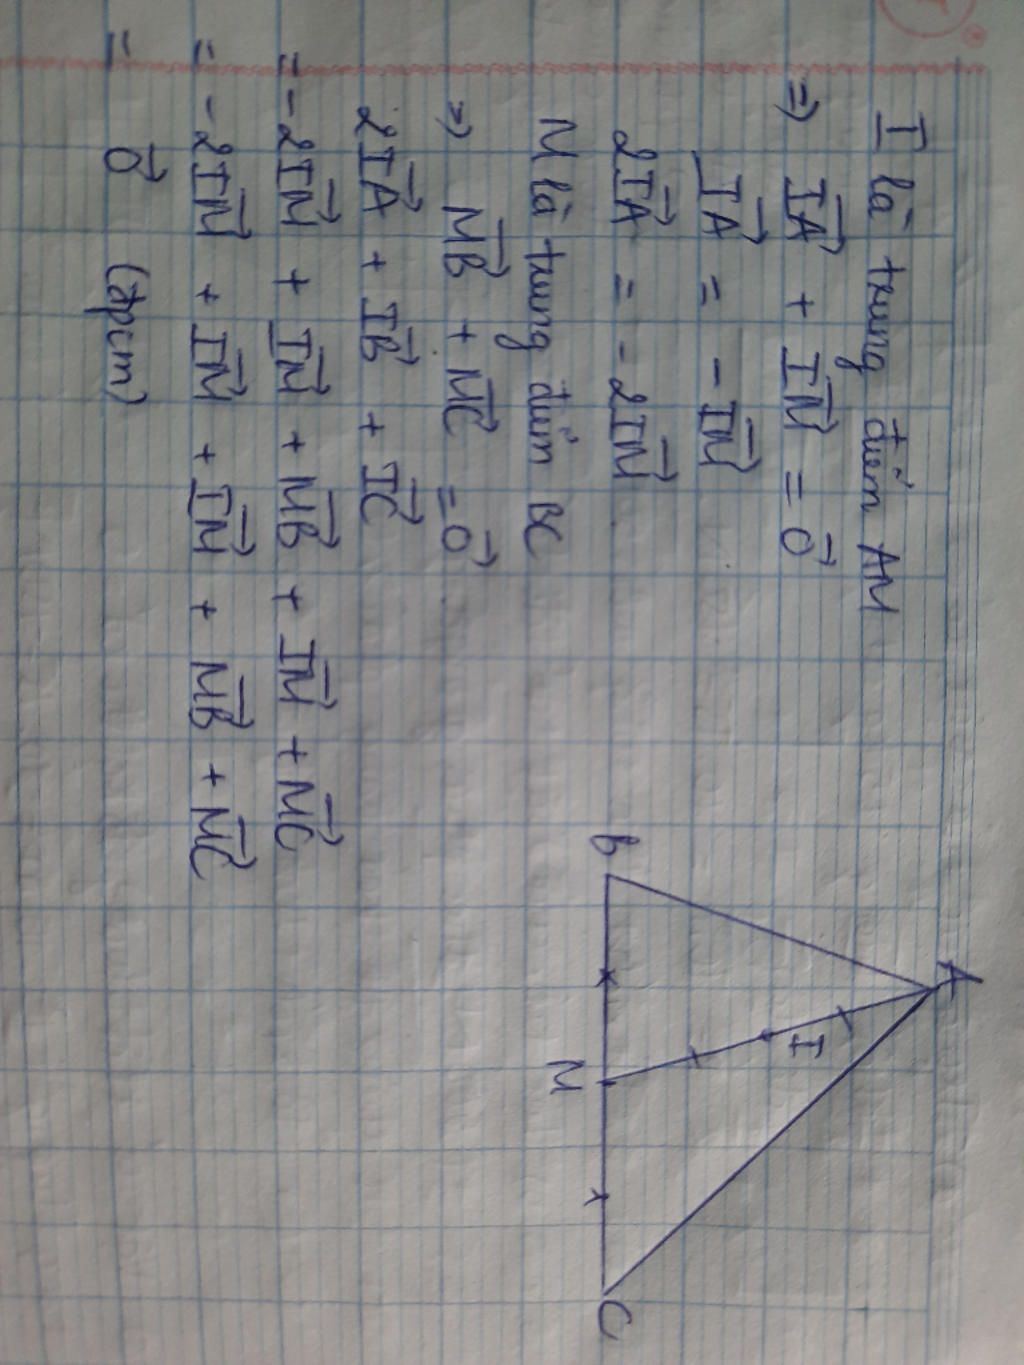 I là trung điểm AM
=> IA⃗ + IM⃗ = 0⃗
IA⃗ = - IM⃗
2IA⃗ = - 2IM⃗
M là trung điểm BC
=> MB⃗ + MC⃗ = 0⃗
2IA⃗ + IB⃗ + IC⃗
= - 2IM⃗ + IM⃗ + MB⃗ + IM⃗ + MC⃗
= - 2IM⃗ + IM⃗ + IM⃗ + MB⃗ + MC⃗
= 0⃗ (đpcm)
A
I
B
M
C